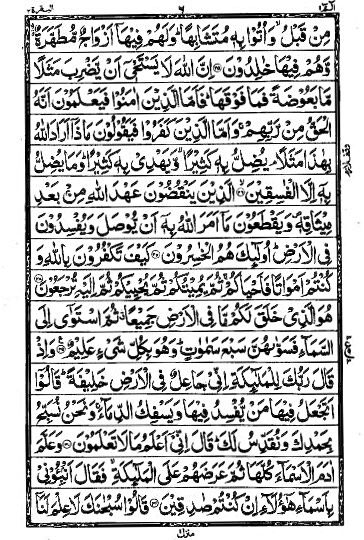 الٓمّٓ ١ ٦ البقرة ٢
مِنْ قَبْلُ ۙ وَاُتُوْا بِهٖ مُتَشَابِهًا ؕ وَلَهُمْ فِيْهَاۤ اَزْوَاجٌ مُّطَهَّرَةٌ ۙۗ
وَّهُمْ فِيْهَا خٰلِدُوْنَ ۝۲۵ اِنَّ اللّٰهَ لَا يَسْتَحْيٖۤ اَنْ يَّضْرِبَ مَثَلًا
مَّا بَعُوْضَةً فَمَا فَوْقَهَا ؕ فَاَمَّا الَّذِيْنَ اٰمَنُوْا فَيَعْلَمُوْنَ اَنَّهُ
الْحَقُّ مِنْ رَّبِّهِمْ ۚ وَاَمَّا الَّذِيْنَ كَفَرُوْا فَيَقُوْلُوْنَ مَاذَاۤ اَرَادَ اللّٰهُ
بِهٰذَا مَثَلًا ۘ يُضِلُّ بِهٖ كَثِيْرًا ۙ وَّيَهْدِيْ بِهٖ كَثِيْرًا ؕ وَمَا يُضِلُّ
بِهٖۤ اِلَّا الْفٰسِقِيْنَ ۝۲۶ الَّذِيْنَ يَنْقُضُوْنَ عَهْدَ اللّٰهِ مِنْۢ بَعْدِ
مِيْثَاقِهٖ ۪ وَيَقْطَعُوْنَ مَاۤ اَمَرَ اللّٰهُ بِهٖۤ اَنْ يُّوْصَلَ وَيُفْسِدُوْنَ
فِي الْاَرْضِ ؕ اُولٰٓئِكَ هُمُ الْخٰسِرُوْنَ ۝۲۷ كَيْفَ تَكْفُرُوْنَ بِاللّٰهِ وَ
كُنْتُمْ اَمْوَاتًا فَاَحْيَاكُمْ ۚ ثُمَّ يُمِيْتُكُمْ ثُمَّ يُحْيِيْكُمْ ثُمَّ اِلَيْهِ تُرْجَعُوْنَ ۝۲۸
هُوَ الَّذِيْ خَلَقَ لَكُمْ مَّا فِي الْاَرْضِ جَمِيْعًا ۗ ثُمَّ اسْتَوٰۤى اِلَى
السَّمَآءِ فَسَوّٰىهُنَّ سَبْعَ سَمٰوٰتٍ ؕ وَهُوَ بِكُلِّ شَيْءٍ عَلِيْمٌ ۝۲۹ وَاِذْ
قَالَ رَبُّكَ لِلْمَلٰٓئِكَةِ اِنِّيْ جَاعِلٌ فِي الْاَرْضِ خَلِيْفَةً ؕ قَالُوْۤا
اَتَجْعَلُ فِيْهَا مَنْ يُّفْسِدُ فِيْهَا وَيَسْفِكُ الدِّمَآءَ ۚ وَنَحْنُ نُسَبِّحُ
بِحَمْدِكَ وَنُقَدِّسُ لَكَ ؕ قَالَ اِنِّيْۤ اَعْلَمُ مَا لَا تَعْلَمُوْنَ ۝۳۰ وَعَلَّمَ
اٰدَمَ الْاَسْمَآءَ كُلَّهَا ثُمَّ عَرَضَهُمْ عَلَى الْمَلٰٓئِكَةِ ۙ فَقَالَ اَنْۢبِـُٔوْنِيْ
بِاَسْمَآءِ هٰۤؤُلَآءِ اِنْ كُنْتُمْ صٰدِقِيْنَ ۝۳۱ قَالُوْا سُبْحٰنَكَ لَا عِلْمَ لَنَاۤ
منزل